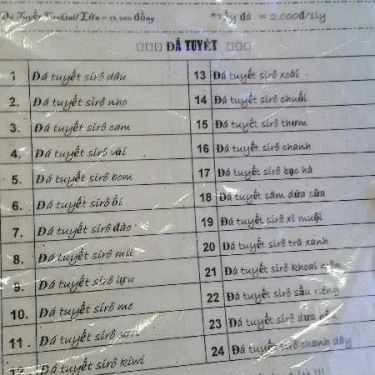 Đá Tuyết
đồng
*Tẩy đá = 2.000đ/1ly
ĐÁ TUYẾT
1 Đá tuyết sirô dâu
2. Đá tuyết sirô nho
3. Đá tuyết sirô cam
4. Đá tuyết sirô vải
5. Đá tuyết sirô bom
6. Đá tuyết sirô ổi
7. Đá tuyết sirô đào
8. Đá tuyết sirô mít
9. Đá tuyết sirô lựu
10. Đá tuyết sirô me
11. Đá tuyết sirô
12. Đá tuyết sirô kiwi
13 Đá tuyết sirô xoài
14 Đá tuyết sirô chuối
15 Đá tuyết sirô thơm
16 Đá tuyết sirô chanh
17 Đá tuyết sirô bạc hà
18 Đá tuyết sâm dứa sữa
19 Đá tuyết sirô xí muội
20 Đá tuyết sirô trà xanh
21 Đá tuyết sirô khoai môn
22 Đá tuyết sirô sầu riêng
23 Đá tuyết sirô dưa
24 Đá tuyết sirô chanh dây